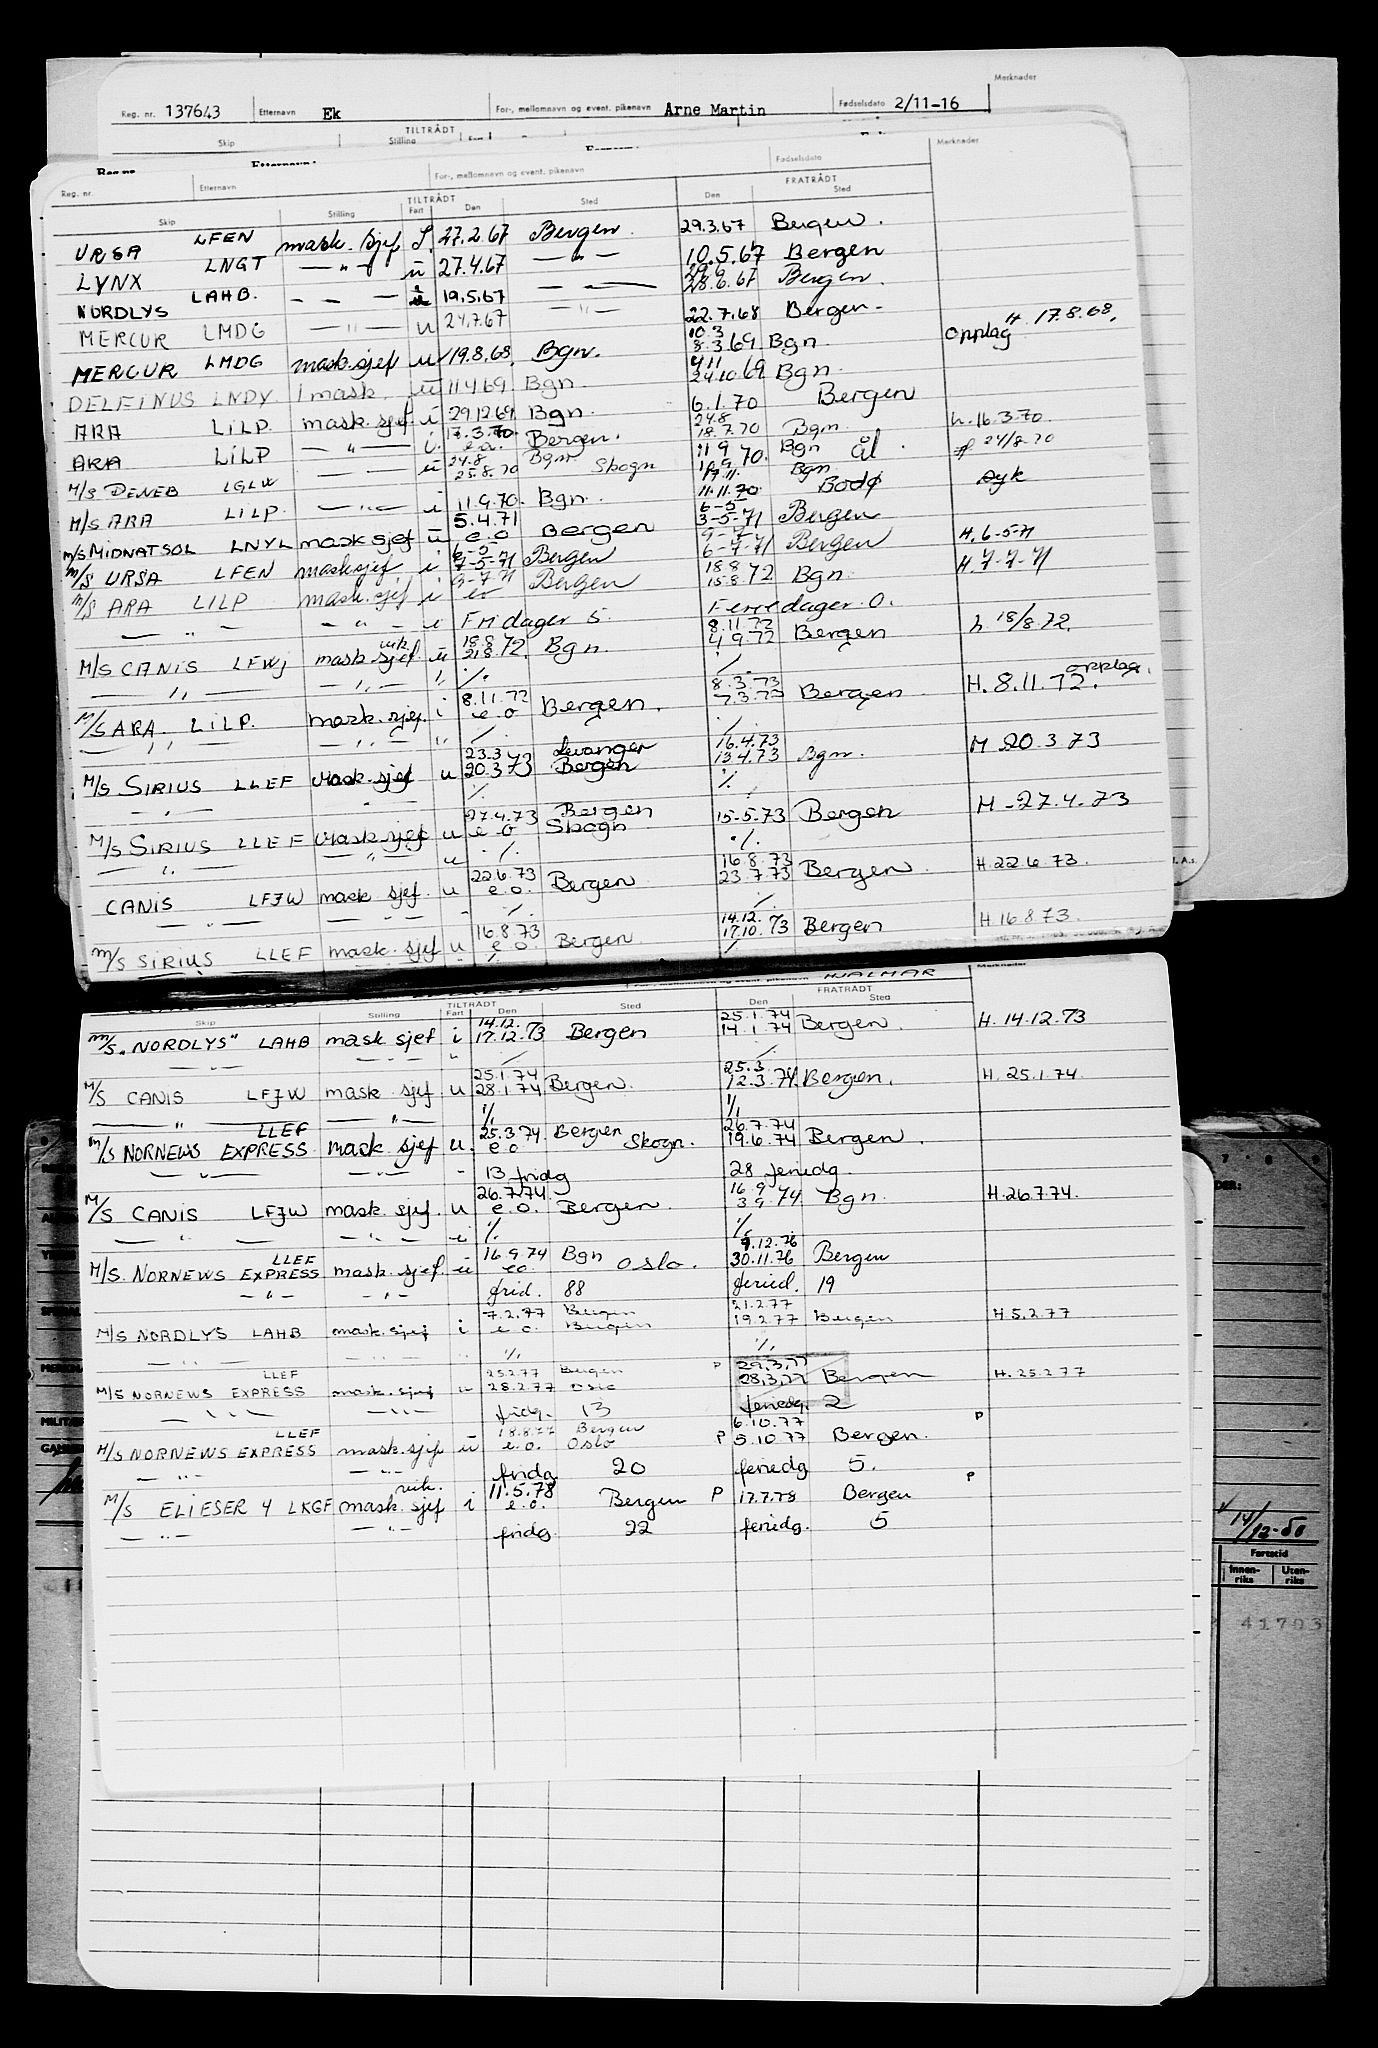 Merknader
Reg. nr. 137643 Etternavn Ek For-, mellomnavn og event. pikenavn Arne Martin Fødselsdato 2/11-16
Skip Stilling TILTRÅDT
Reg. nr. Etternavn For-, mellomnavn og event. pikenavn Fødselsdato Merknader
Skip Stilling TILTRÅDT Fart Den Sted Den FRATRÅDT Sted
URSA LFEN mask. sjef 27.2.67 Bergen. 29.3.67 Bergen.
LYNX LNGT — " — u 27.4.67 — " — 10.5.67 Bergen
NORDLYS LAHB. — — — 19.5.67 — — 28.6.67 Bergen.
MERCUR LMDG — " — u 24.7.67 — " — 22.7.68 Bergen. Opplag H. 17.8.68.
MERCUR LMDG mask.sjef u 19.8.68. Bgn. 10.3 8.3.69 Bgn.
DELFINUS LNDY 1 mask. u 11.4.69 Bgn. 4/11 24.10.69 Bgn.
ARA LILP. mask. sjef. i 29.12.69 Bgn. 6.1.70 Bergen
ARA LILP — " — i. 17.3.70. e.o. Bergen. 24.8 18.7.70 Bgn. h. 16.3.70.
M/S DENEB LGLW — — u 24.8 25.8.70 Bgn. Skogn 11.9.70. Bgn ål. 24/8.70
M/S ARA LILP. — " — i 11.9.70. Bgn. 11.11.70 Bgn Bodø Syk
M/S MIDNATSOL LNYL mask sjef u 5.4.71 e.o Bergen 6-5 3-5-71 Bergen
M/S URSA LFEN mask sjef i 6-5 7-5-71 Bergen 6-7-71 Bergen H. 6-5-71
M/S ARA LILP mask. sjef i Bergen 18.8 15.8.72 Bgn. H. 7-7-71
— " — — " — Fridager 5. Feriedager. 0.
M/S CANIS LFWJ mask vik. sjef u 18.8.72 21.8.72. Bgn. 8.11.72 4.9.72 Bergen h 18/8.72.
— " — — " — " %. %.
M/S ARA. LILP. mask. sjef. i 8.11.72 e.o Bergen. 8.3.73 7.3.73 Bergen H. 8.11.72. opplag.
— " — — " — " %. %.
M/S SIRIUS LLEF mask. sjef u 23.3.73 20.3.73 Levanger Bergen 16.4.73 13.4.73 Bgn. M 20.3.73
— " — " %. %.
M/S SIRIUS LLEF mask. sjef u 27.4.73 e.o Bergen Skogn 15-5.73 Bergen M -27.4.73
— " — — " — u %. %.
CANIS LFJW mask sjef. u 22.6.73 e.o. Bergen 16.8.73 23.7.73 Bergen H. 22.6.73.
— " — — " — %. %.
M/S SIRIUS LLEF mask. sjef u 16.8.73 e.o Bergen 14.12. 17.10.73 Bergen H 16.8.73.
HJALMAR Merknader
Skip Stilling TILTRÅDT Fart Den Sted Den FRATRÅDT Sted
M/S "NORDLYS" LAHB mask sjef i 14.12. 17.12.73 Bergen 25.1.74 14.1.74 Bergen H. 14.12.73
— " — " %. %.
M/S CANIS LFJW mask. sjef. u 25.1.74 28.1.74 Bergen. 25.3. 12.3.74 Bergen. H. 25.1.74.
— " — — " — %. %.
M/S NORNEWS EXPRESS LLEF mask. sjef u. 25.3.74 e.o Bergen Skogn. 26.7.74 19.6.74 Bergen.
— " — — " — 13 fridg 28 feriedg.
M/S CANIS LFJW mask. sjef. u 26.7.74. e.o. Bergen. 16.9.74 3.9.74 Bgn. H. 26.7.74.
— " — — " — %. %.
M/S. NORNEWS EXPRESS LLEF mask. sjef. u 16.9.74 e.o. Bgn Oslo. 9.12.76 30.11.76 Bergen
— " — — " — frid. 88 feried. 19
M/S NORDLYS LAHB mask. sjef i 7.2.77 e.o. Bergen Bergen 21.2.77 19.2.77 Bergen H 5.2.77
— " — — " — %. %.
M/S NORNEWS EXPRESS LLEF mask. sjef u 25.2.77 28.2.77 Bergen Oslo P 29.3.77 28.3.77 Bergen H. 25.2.77
— " — — " — fridg. 13 feriedg. 2
M/S NORNEWS EXPRESS LLEF mask. sjef u 18.8.77 e.o. Bergen Oslo P 6.10.77 5.10.77 Bergen. P
— " — — " — fridg 20 feriedg 5.
M/S ELIESER 4 LKGF mask. vik. sjef i 11.5.78 e.o. Bergen P 17.7.78 Bergen P
— " — — " — fridg. 22 feriedg. 5
14/12-50
Fartstid
Innenriks Utenriks
41703